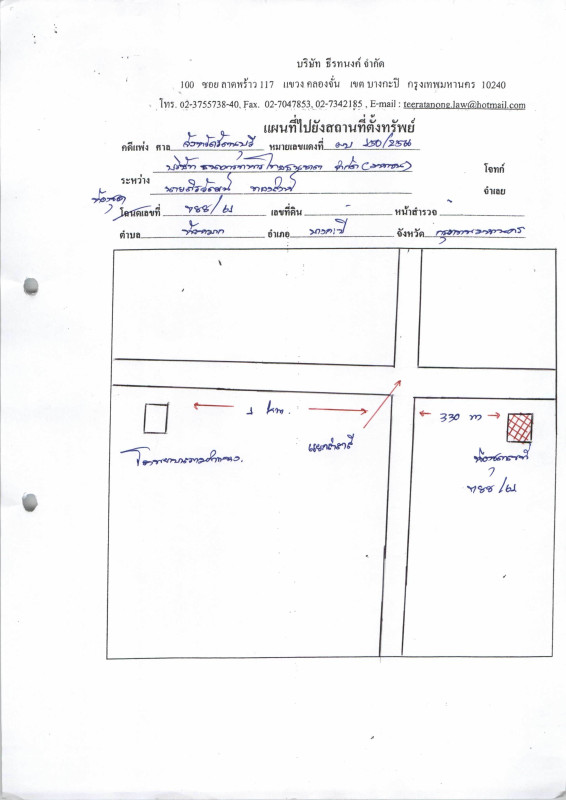 บริษัท ธีรทนงค์ จำกัด
100 ซอย ลาดพร้าว 117 แขวง คลองจั่น เขต บางกะปิ กรุงเทพมหานคร 10240
โทร. 02-3755738-40, Fax. 02-7047853, 02-7342185 , E-mail : teeratanong.law@hotmail.com
แผนที่ไปยังสถานที่ตั้งทรัพย์
คดีแพ่ง ศาล จังหวัดมีนบุรี หมายเลขแดงที่
บริษัท ธนาคารทหารไทยธนชาต จำกัด (มหาชน) โจทก์
ระหว่าง
จำเลย
ห้องชุด
โฉนดเลขที่ เลขที่ดิน - หน้าสำรวจ -
ตำบล อำเภอ บางกะปิ จังหวัด กรุงเทพมหานคร
1 km. 330 m
โรงพยาบาลรามคำแหง. แยกลำสาลี ห้องชุดเลขที่